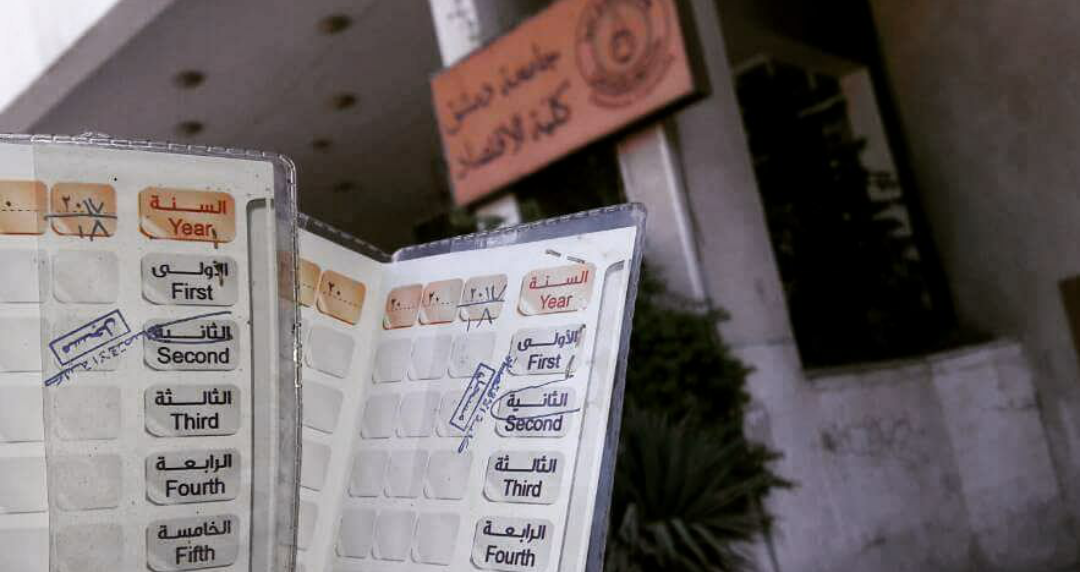 جامعة دمشق
كلية الاقتصاد
٢٠١٧
١٨
السنة
Year
الأولى
First
مسجل
الثانية
Second
الثالثة
Third
الرابعة
Fourth
الخامسة
Fifth
٢٠
٢٠
٢٠
٢٠١٧
١٨
السنة
Year
الأولى
First
مسجل
الثانية
Second
الثالثة
Third
الرابعة
Fourth